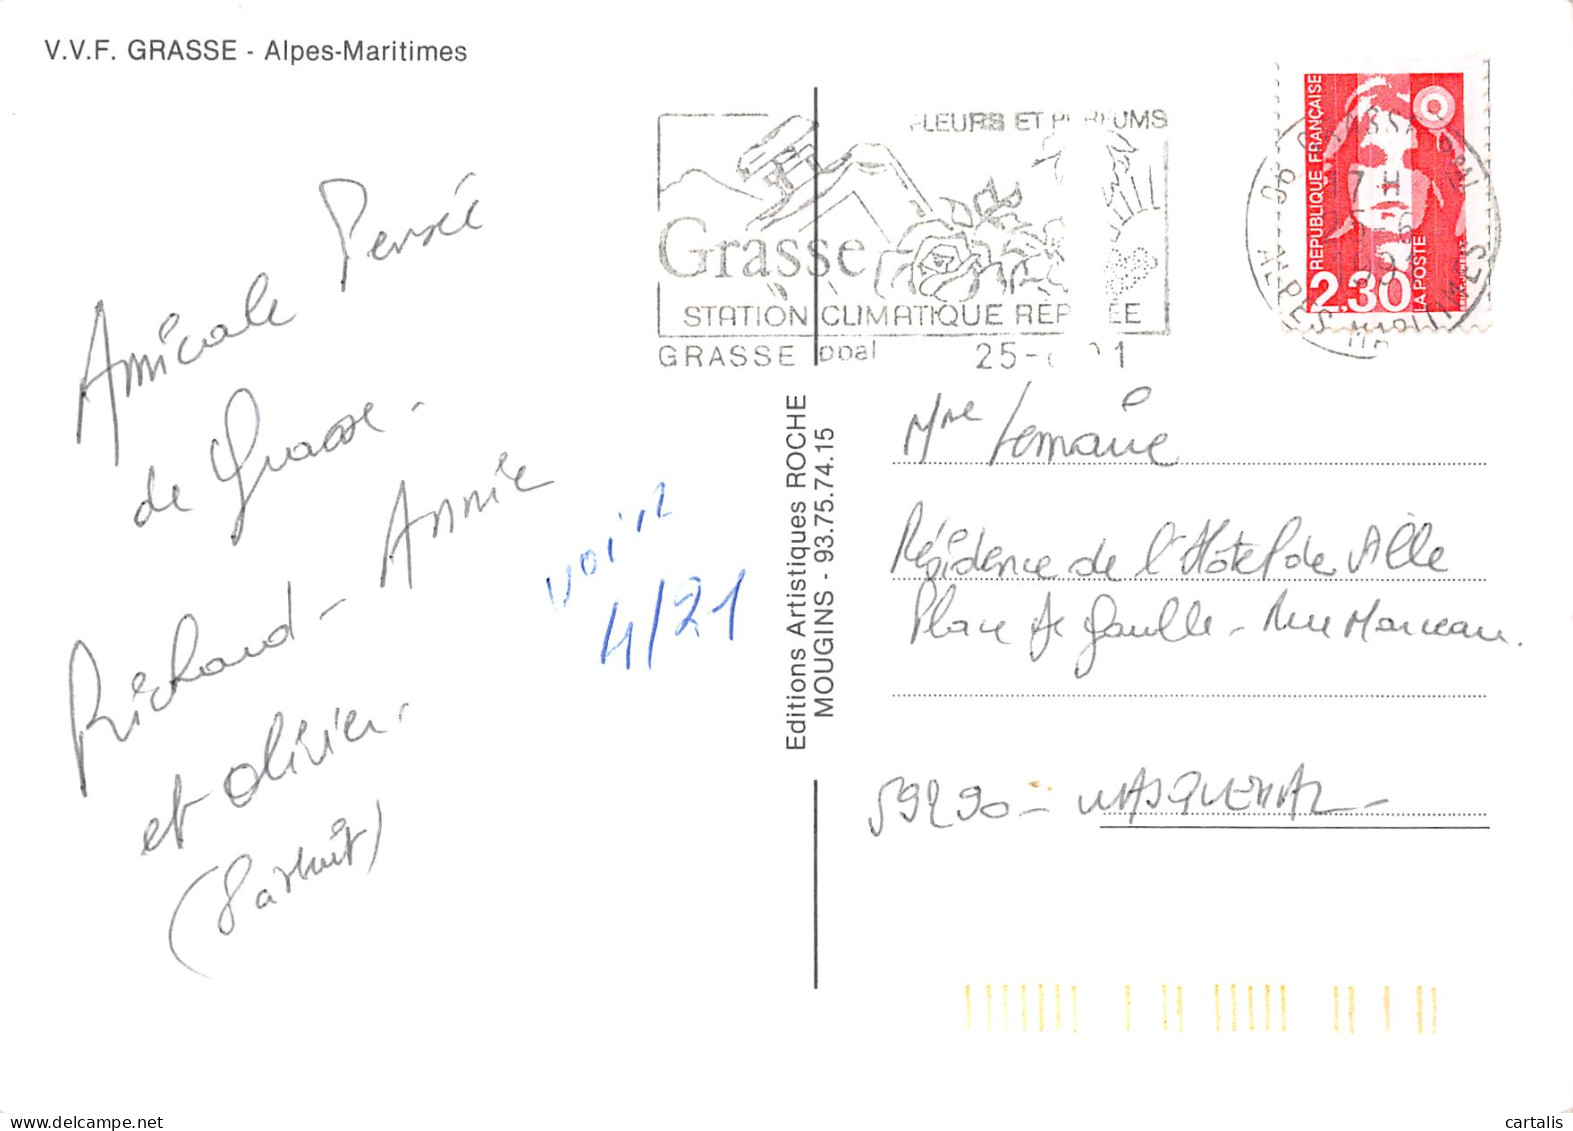 V.V.F. GRASSE - Alpes-Maritimes
Amicale Pensée
de Grasse.
Richard - Annie
et Olivier.
voir
4/21
Editions Artistiques ROCHE
MOUGINS - 93.75.74.15
FLEURS ET PARFUMS
Grasse
STATION CLIMATIQUE REPUTEE
GRASSE ppal 25-
REPUBLIQUE FRANÇAISE
2.30
LA POSTE
06 GRASSE
17 H
ALPES MARITIMES
Mme Lemaire
Résidence de l'Hotel de Ville
Place de Gaulle - Rue Marceau.
59290 - WASQUEHAL -
cartalis
delcampe.net